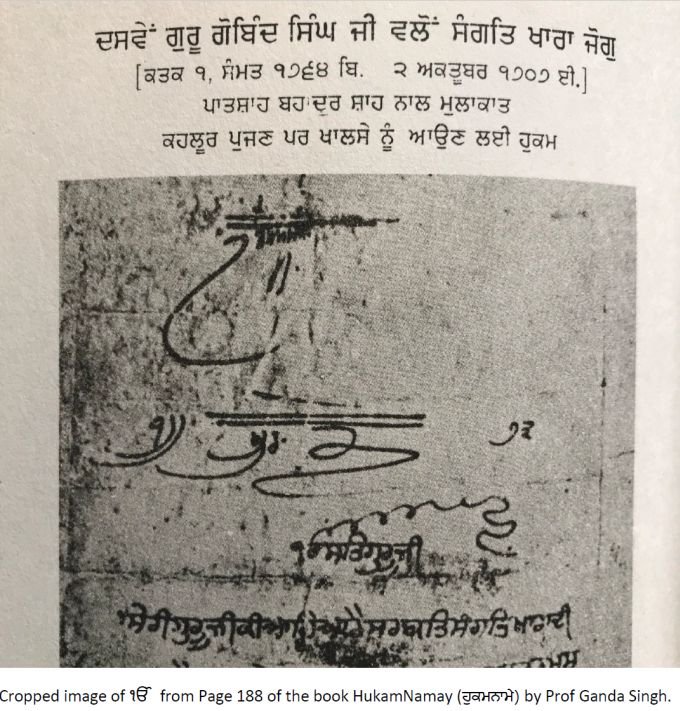 ਦਸਵੇਂ ਗੁਰੂ ਗੋਬਿੰਦ ਸਿੰਘ ਜੀ ਵਲੋਂ ਸੰਗਤਿ ਖਾਰਾ ਜੋਗੁ
[ਕਤਕ ੧, ਸੰਮਤ ੧੭੬੪ ਬਿ. ੨ ਅਕਤੂਬਰ ੧੭੦੭ ਈ.]
ਪਾਤਸ਼ਾਹ ਬਹਾਦੁਰ ਸ਼ਾਹ ਨਾਲ ਮੁਲਾਕਾਤ
ਕਹਲੂਰ ਪੁਜਣ ਪਰ ਖਾਲਸੇ ਨੂੰ ਆਉਣ ਲਈ ਹੁਕਮ
ੴ ਸਤਿਗੁਰੂ ਜੀ
ਸਰਬਤਿ ਸੰਗਤਿ ਖਾਰਾ ਦੀ
Cropped image of ੴ from Page 188 of the book HukamNamay (ਹੁਕਮਨਾਮੇ) by Prof Ganda Singh.